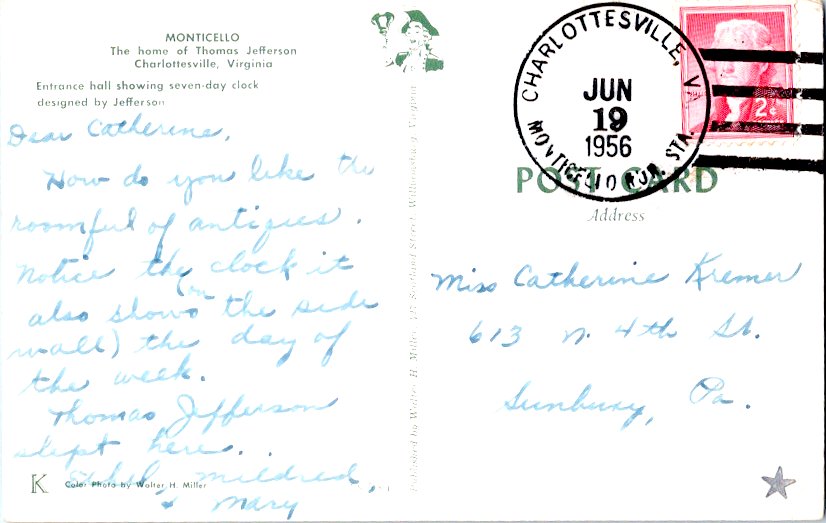 MONTICELLO
The home of Thomas Jefferson
Charlottesville, Virginia
Entrance hall showing seven-day clock
designed by Jefferson
Dear Catherine,
How do you like the
roomful of antiques.
Notice the clock it
also shows (on the side
wall) the day of
the week.
Thomas Jefferson
slept here..
Ethel, Mildred,
+ Mary
K
Color Photo by Walter H. Miller
Published by Walter H. Miller, Scotland Street, Williamsburg, Virginia
CHARLOTTESVILLE, VA
JUN
19
1956
MONTICELLO RUR. STA.
2¢
POST CARD
Address
Miss Catherine Kremer
613 N. 4th St.
Sunbury, Pa.